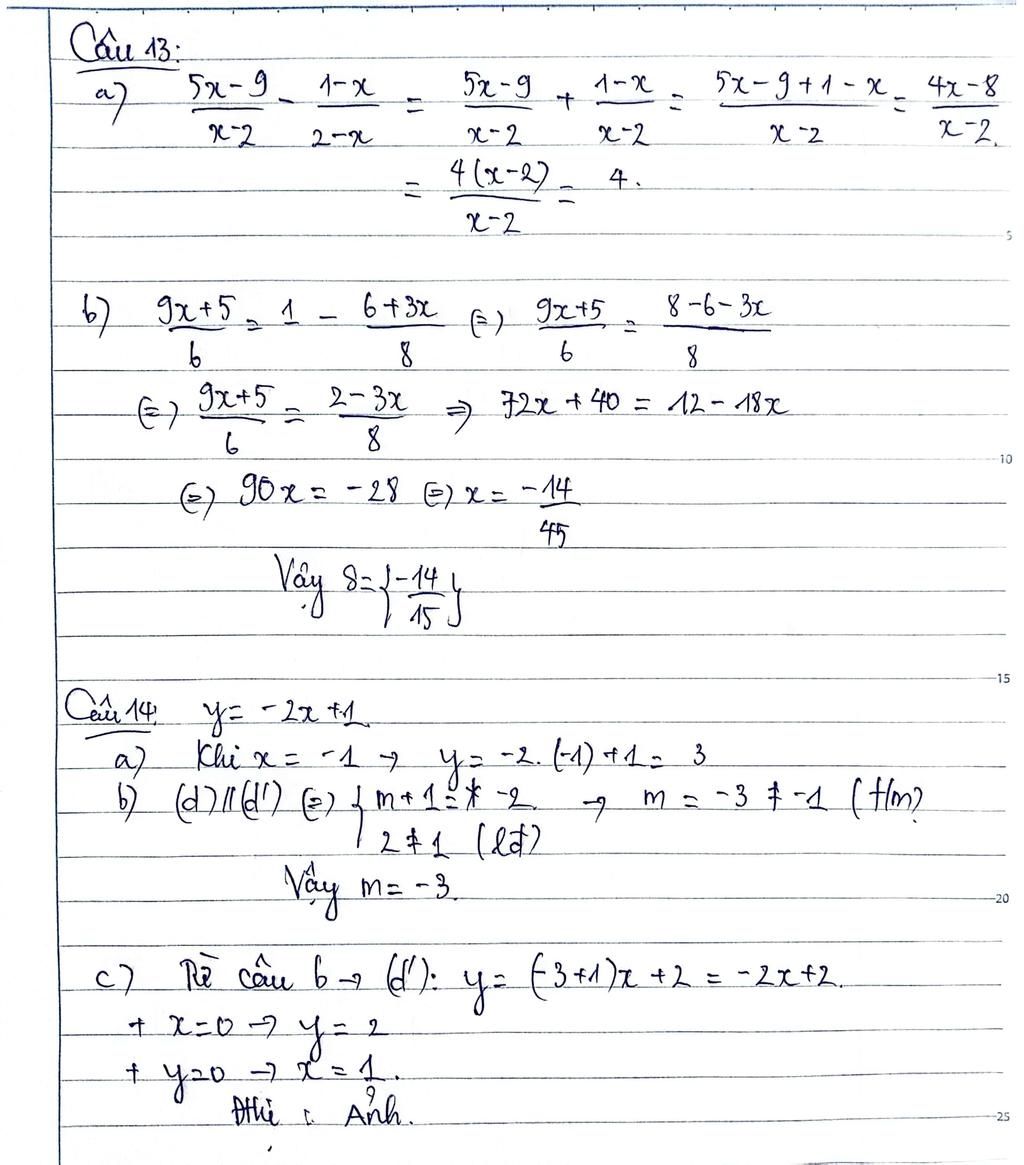 Câu 13:
a) (5x-9)/(x-2) - (1-x)/(2-x) = (5x-9)/(x-2) + (1-x)/(x-2) = (5x-9+1-x)/(x-2) = (4x-8)/(x-2).
= 4(x-2)/(x-2) = 4.
5
b) (9x+5)/6 = 1 - (6+3x)/8 (=) (9x+5)/6 = (8-6-3x)/8
(=) (9x+5)/6 = (2-3x)/8 => 72x+40 = 12-18x
10
(=) 90x = -28 (=) x = -14/45
Vậy S={-14/15}
15
Câu 14: y= -2x+1
a) Khi x = -1 → y = -2.(-1)+1 = 3
b) (d)//(d') (=) { m+1 = -2 → m = -3 ≠ -1 (t/m)
2≠1 (lđ)
Vậy m = -3.
20
c) Từ câu b → (d'): y = (-3+1)x+2 = -2x+2.
+ x=0 → y = 2
+ y=0 → x = 1.
Đthị : Ảnh.
25